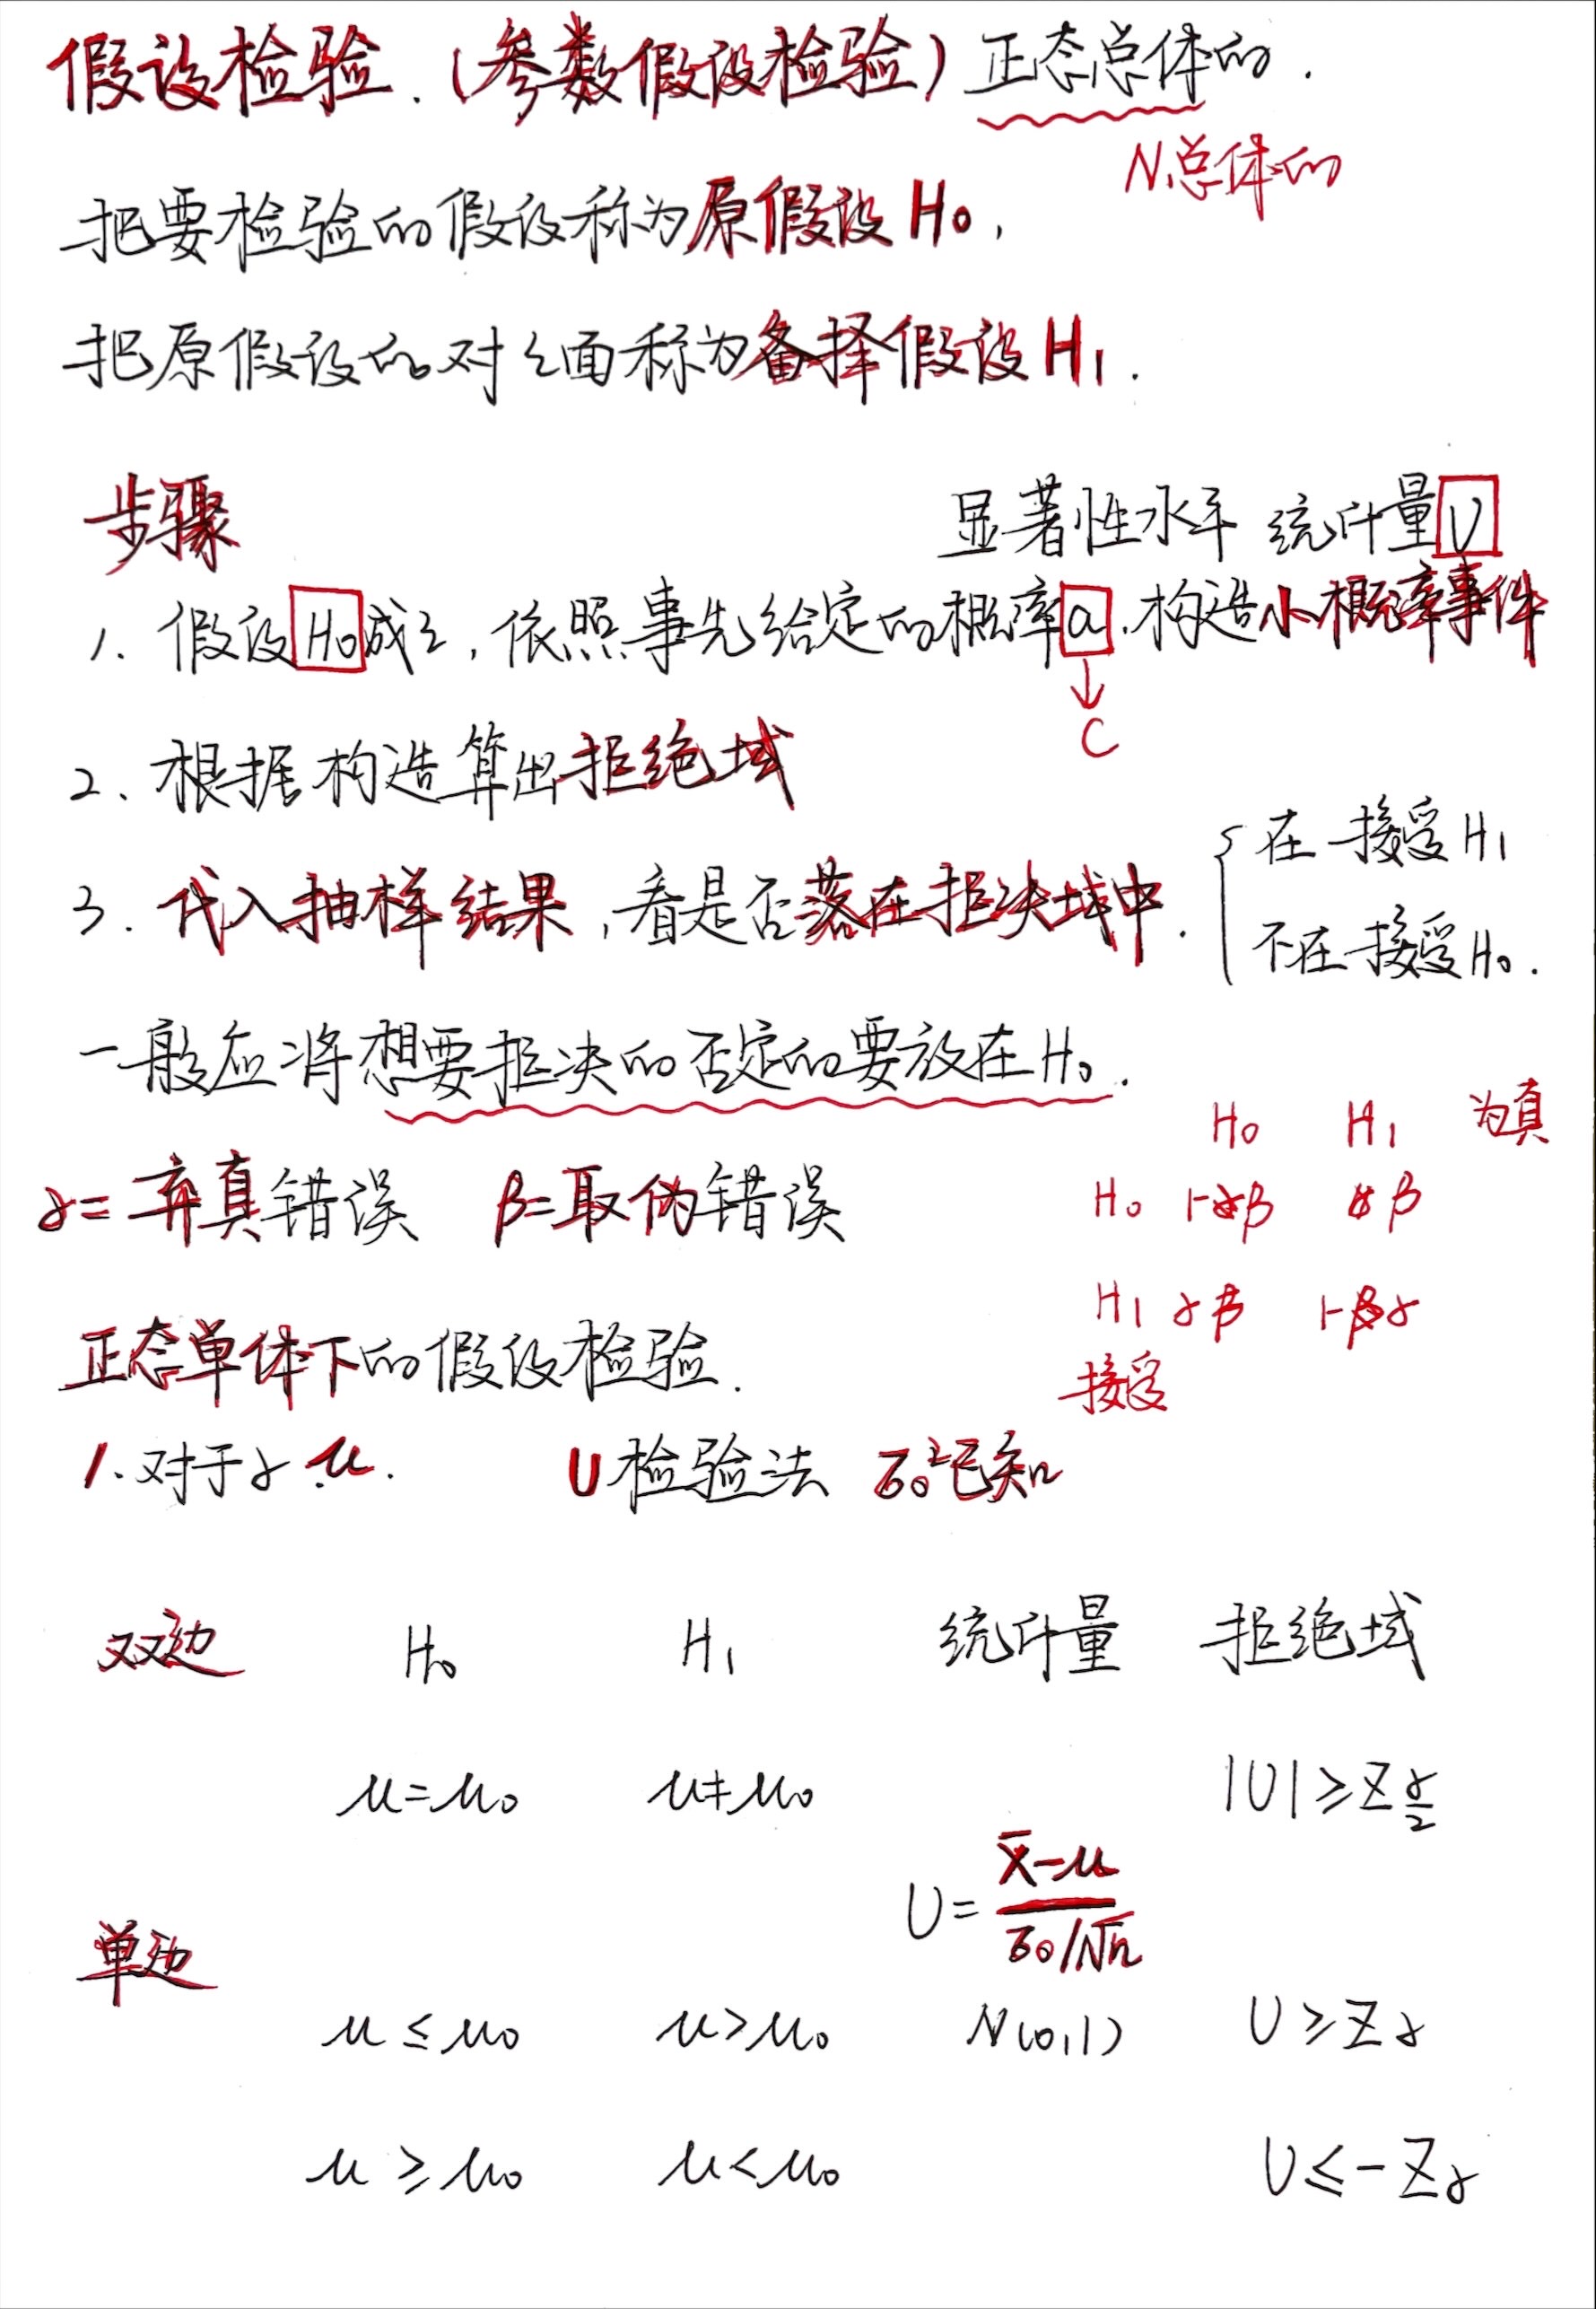 假设检验.(参数假设检验)正态总体的.
N总体的
把要检验的假设称为原假设H₀,
把原假设的对立面称为备择假设H₁.
步骤
显著性水平 统计量U
1. 假设H₀成立,依照事先给定的概率α,构造小概率事件
↓
C
2、根据构造算出拒绝域
3. 代入抽样结果,看是否落在拒决域中.
{在 接受H₁
不在 接受H₀.
一般应将想要拒决的否定的要放在H₀.
H₀ H₁ 为真
α=弃真错误 β=取伪错误
H₀ 1-β β
H₁ α 1-α
接受
正态单体下的假设检验.
1.对于 μ. U检验法 σ₀²已知
双边 H₀ H₁ 统计量 拒绝域
μ=μ₀ μ≠μ₀ |U|≥Z α/2
U= (x̄-μ)/(σ₀/√n)
单边
μ≤μ₀ μ>μ₀ N(0,1) U≥Zα
μ≥μ₀ μ<μ₀ U≤-Zα